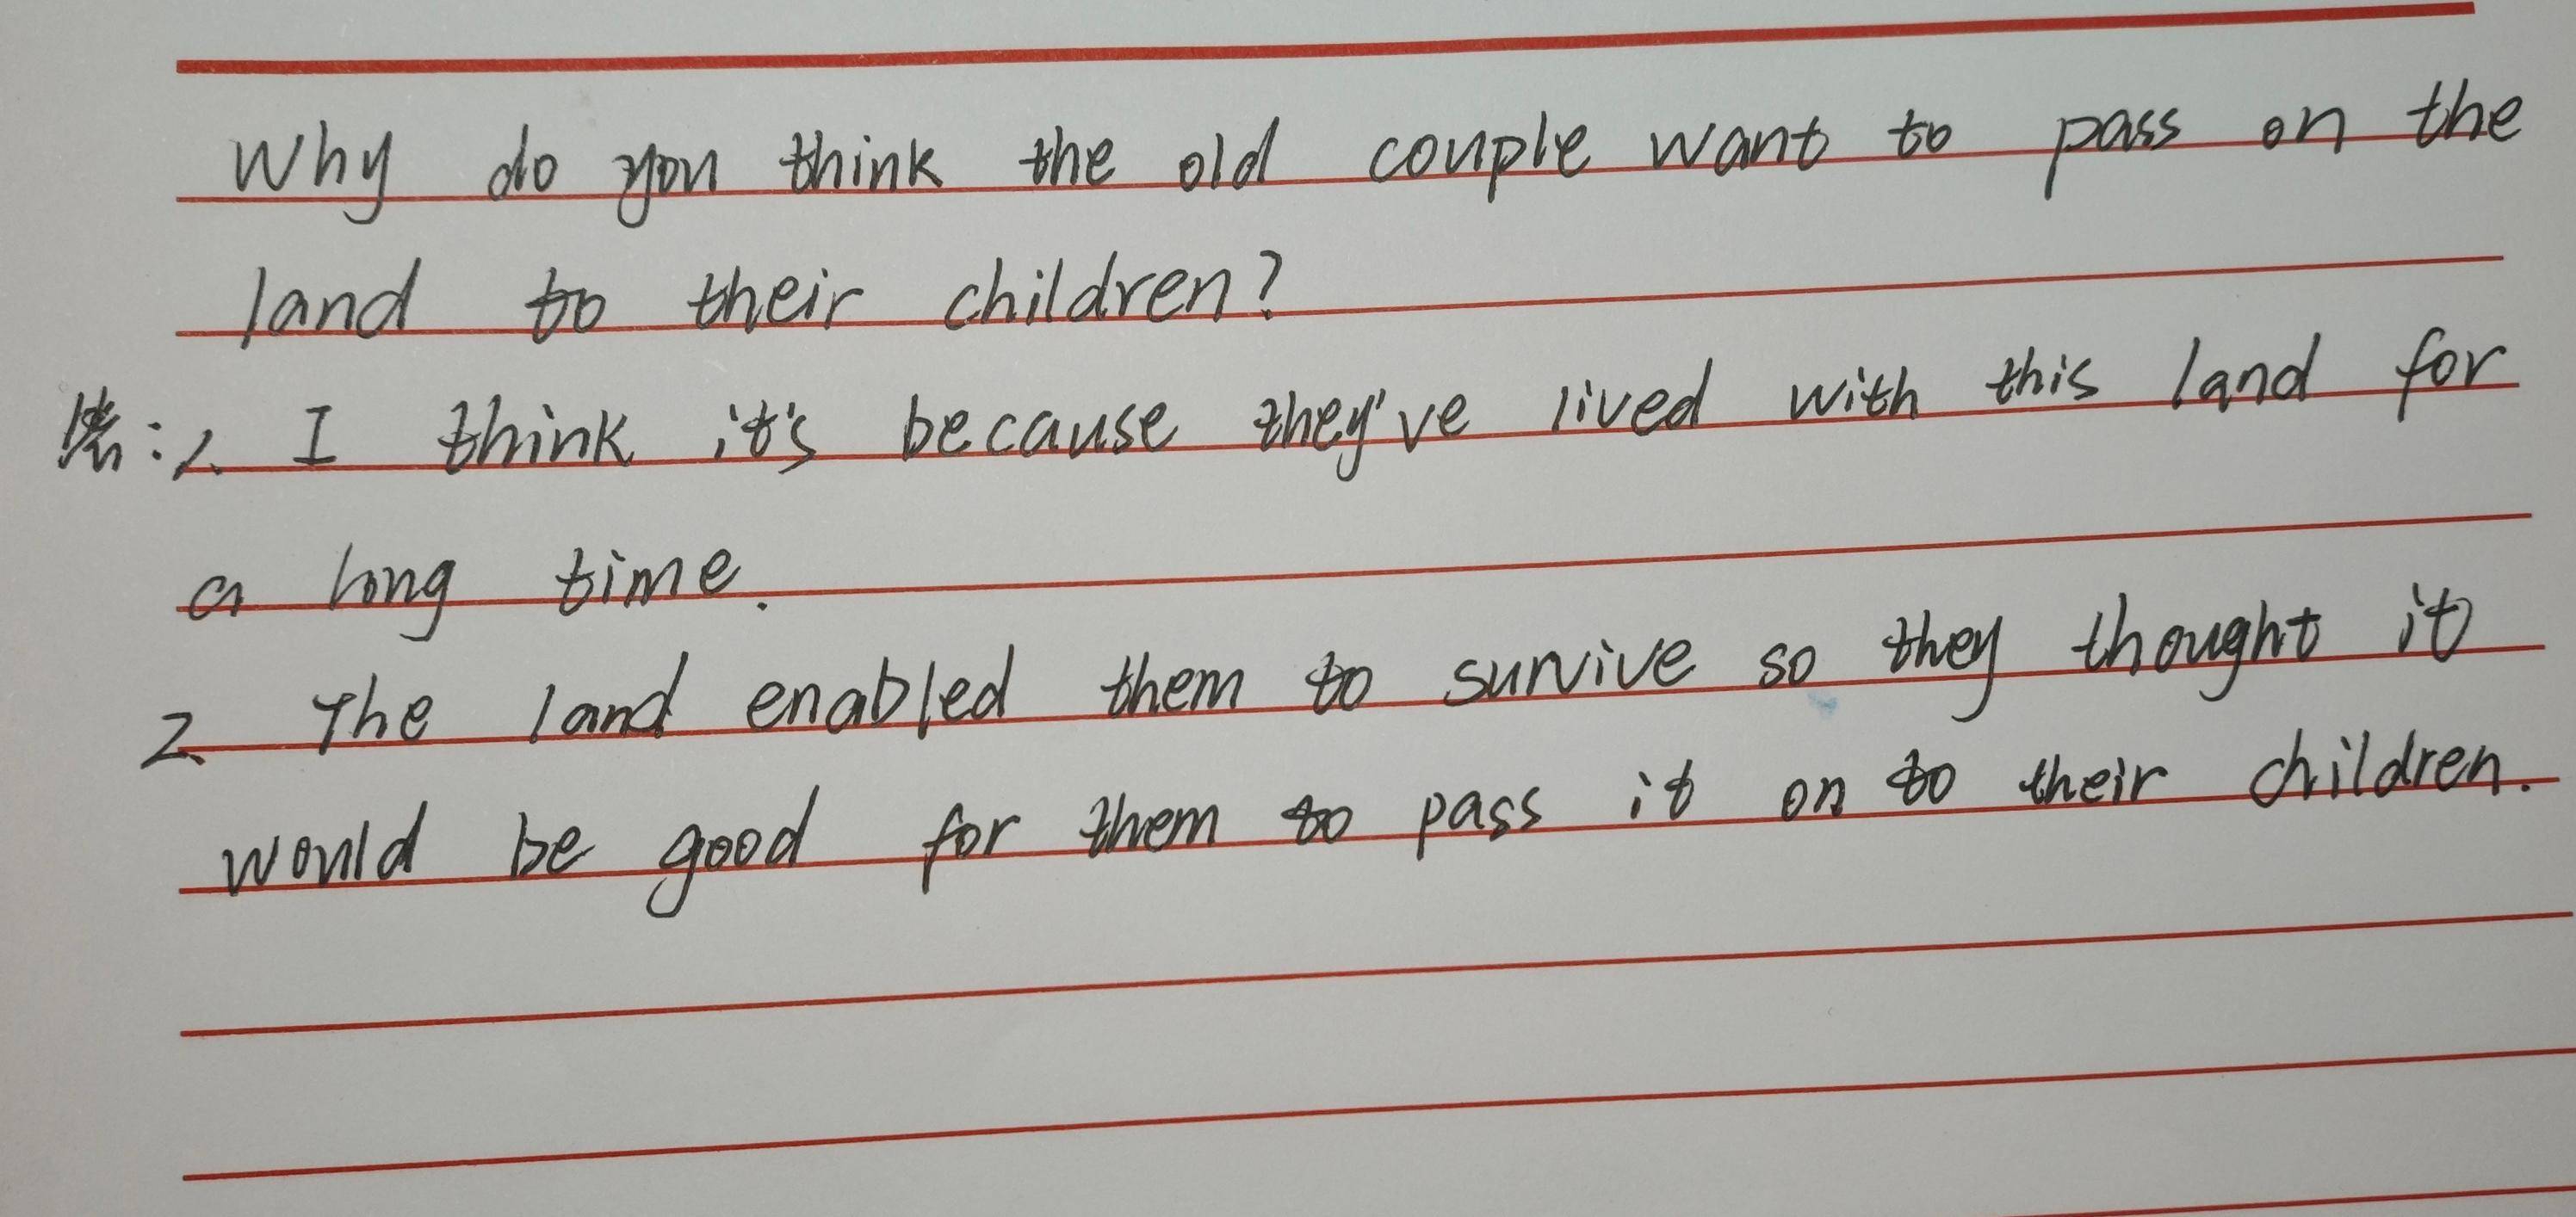 Why do you think the old couple want to pass on the
land to their children?
1. I think it's because they've lived with this land for
a long time.
2. The land enabled them to survive so they thought it
would be good for them to pass it on to their children.